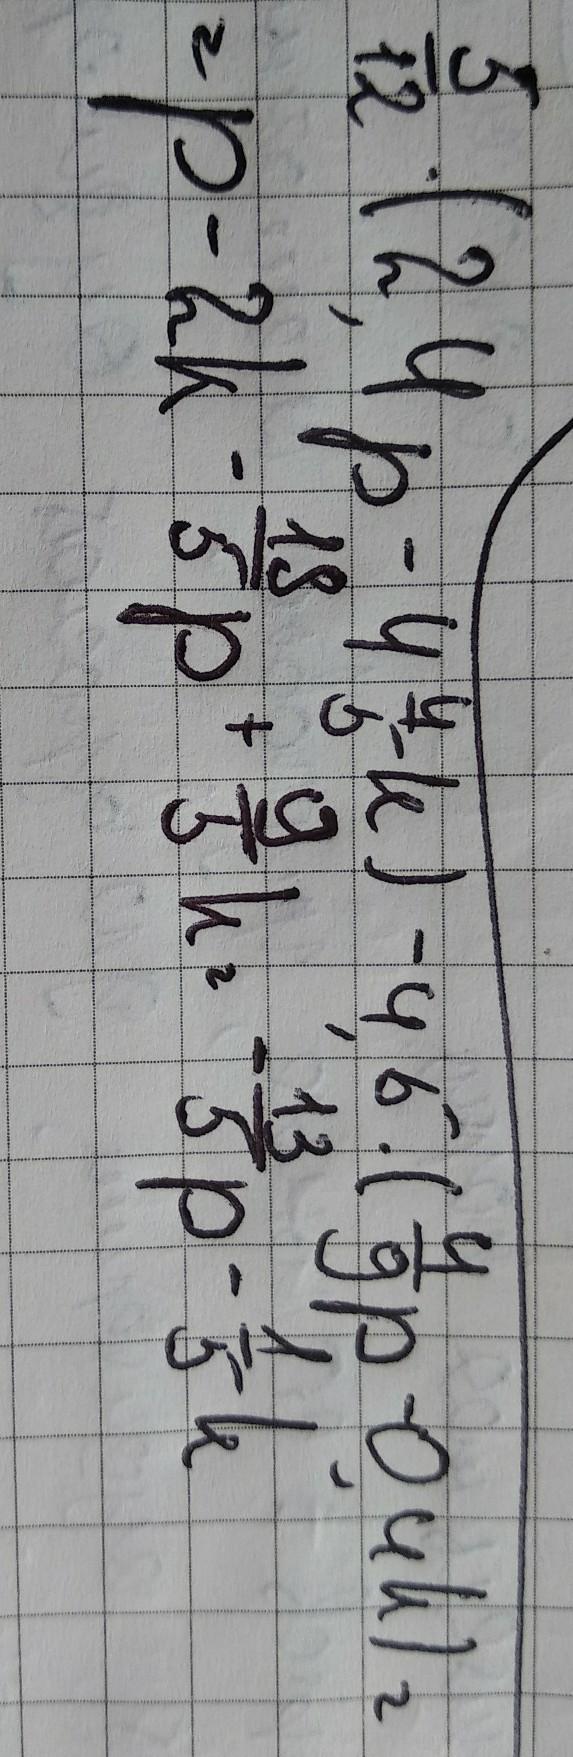 5/12 · (2,4p - 4 4/5 k) - 4,5 · (4/9 p - 0,4k) =
= p - 2k - 18/5 p + 9/5 k = - 13/5 p - 1/5 k